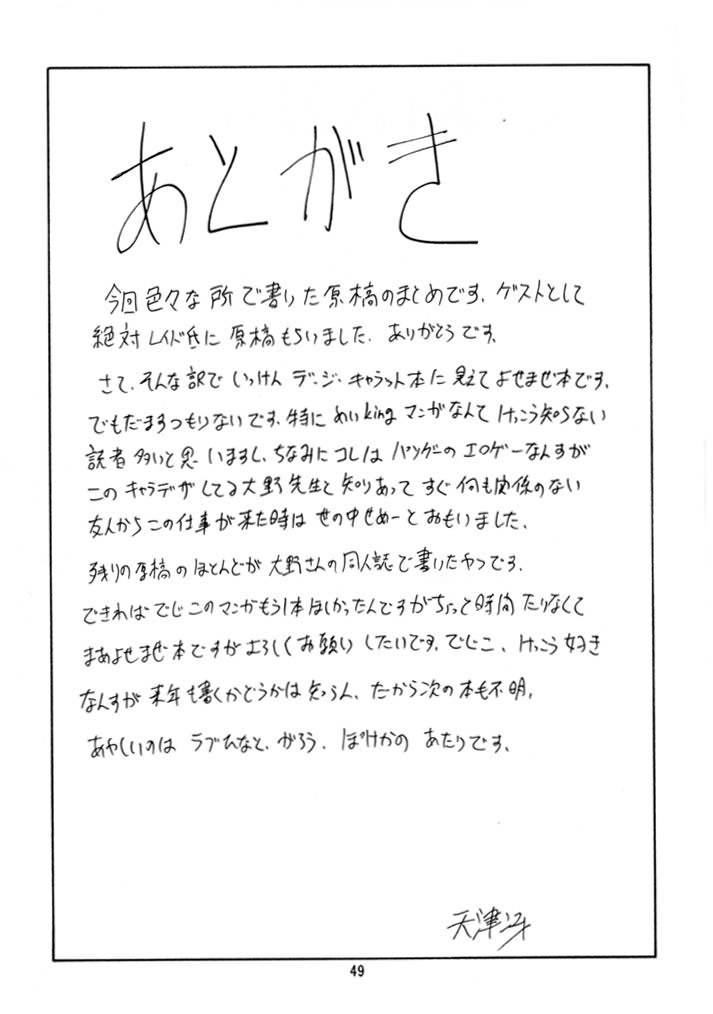 あとがき
今回色々な所で書いた原稿のまとめです。ゲストとして
絶対レイド氏に原稿もらいました。ありがとうです。
さて、そんな訳でいっけんデ・ジ・キャラット本に見えてよせませ本です。
でもだますつもりないです。特にめいkingマンガなんてけっこう知らない
読者多いと思いますし、ちなみにコレはパソゲーのエロゲーなんすが
このキャラデザしてる大野先生と知りあってすぐ何も関係のない
友人からこの仕事が来た時は世の中せめーとおもいました。
残りの原稿のほとんどが大野さんの同人誌で書いたやつです。
できればでじこのマンガもう1本ほしかったんですがちょっと時間たりなくて
まあよせませ本ですがよろしくお願いしたいです。でじこ、けっこう好き
なんすが来年も書くかどうかは知らん、だから次の本も不明。
あやしいのはラブひなと、がろう、ぽけかのあたりです、
天津冴
49